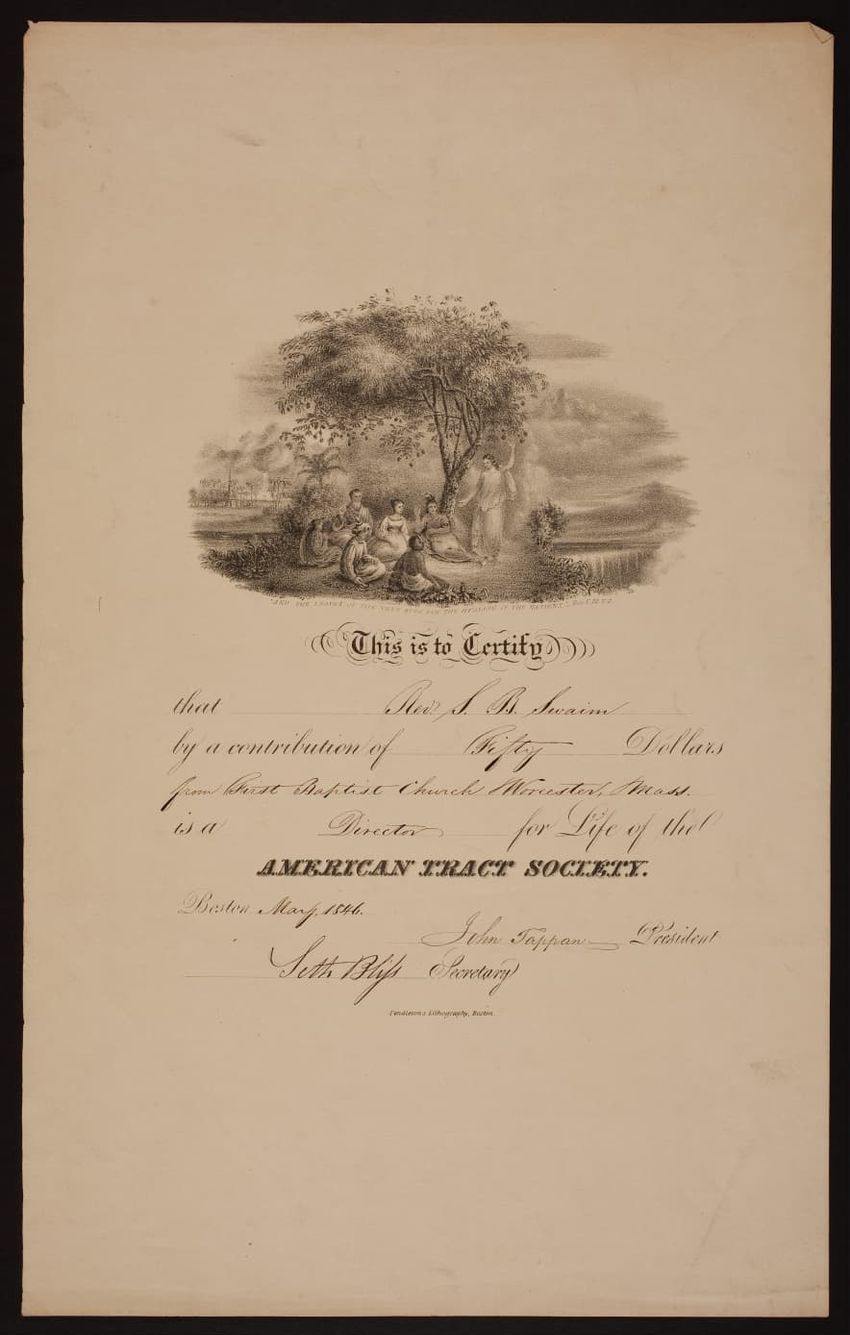 "AND THE LEAVES OF THE TREE WERE FOR THE HEALING OF THE NATIONS." Rev.
This is to Certify
that Revd. S. B. Swaim
by a contribution of Fifty Dollars
from First Baptist Church Worcester, Mass.
is a Director for Life of the
AMERICAN TRACT SOCIETY.
Boston May, 1846.
John Tappan President
Seth Bliss Secretary
Pendleton's Lithography, Boston.